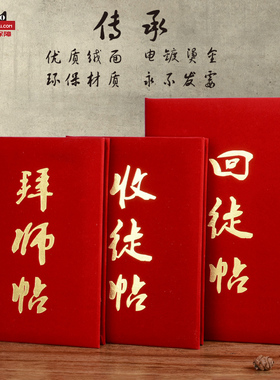 传承
优质绒面 电镀烫金
环保材质 永不发霉
拜师帖
收徒帖
回徒帖